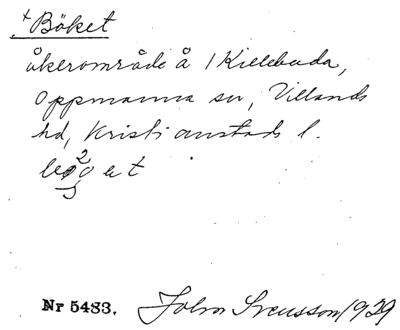 +Böket
åkerområde å 1 Killebuda,
Oppmanna sn, Villands
hd, Kristianstads l.
Nr 5483. John Svensson 1929